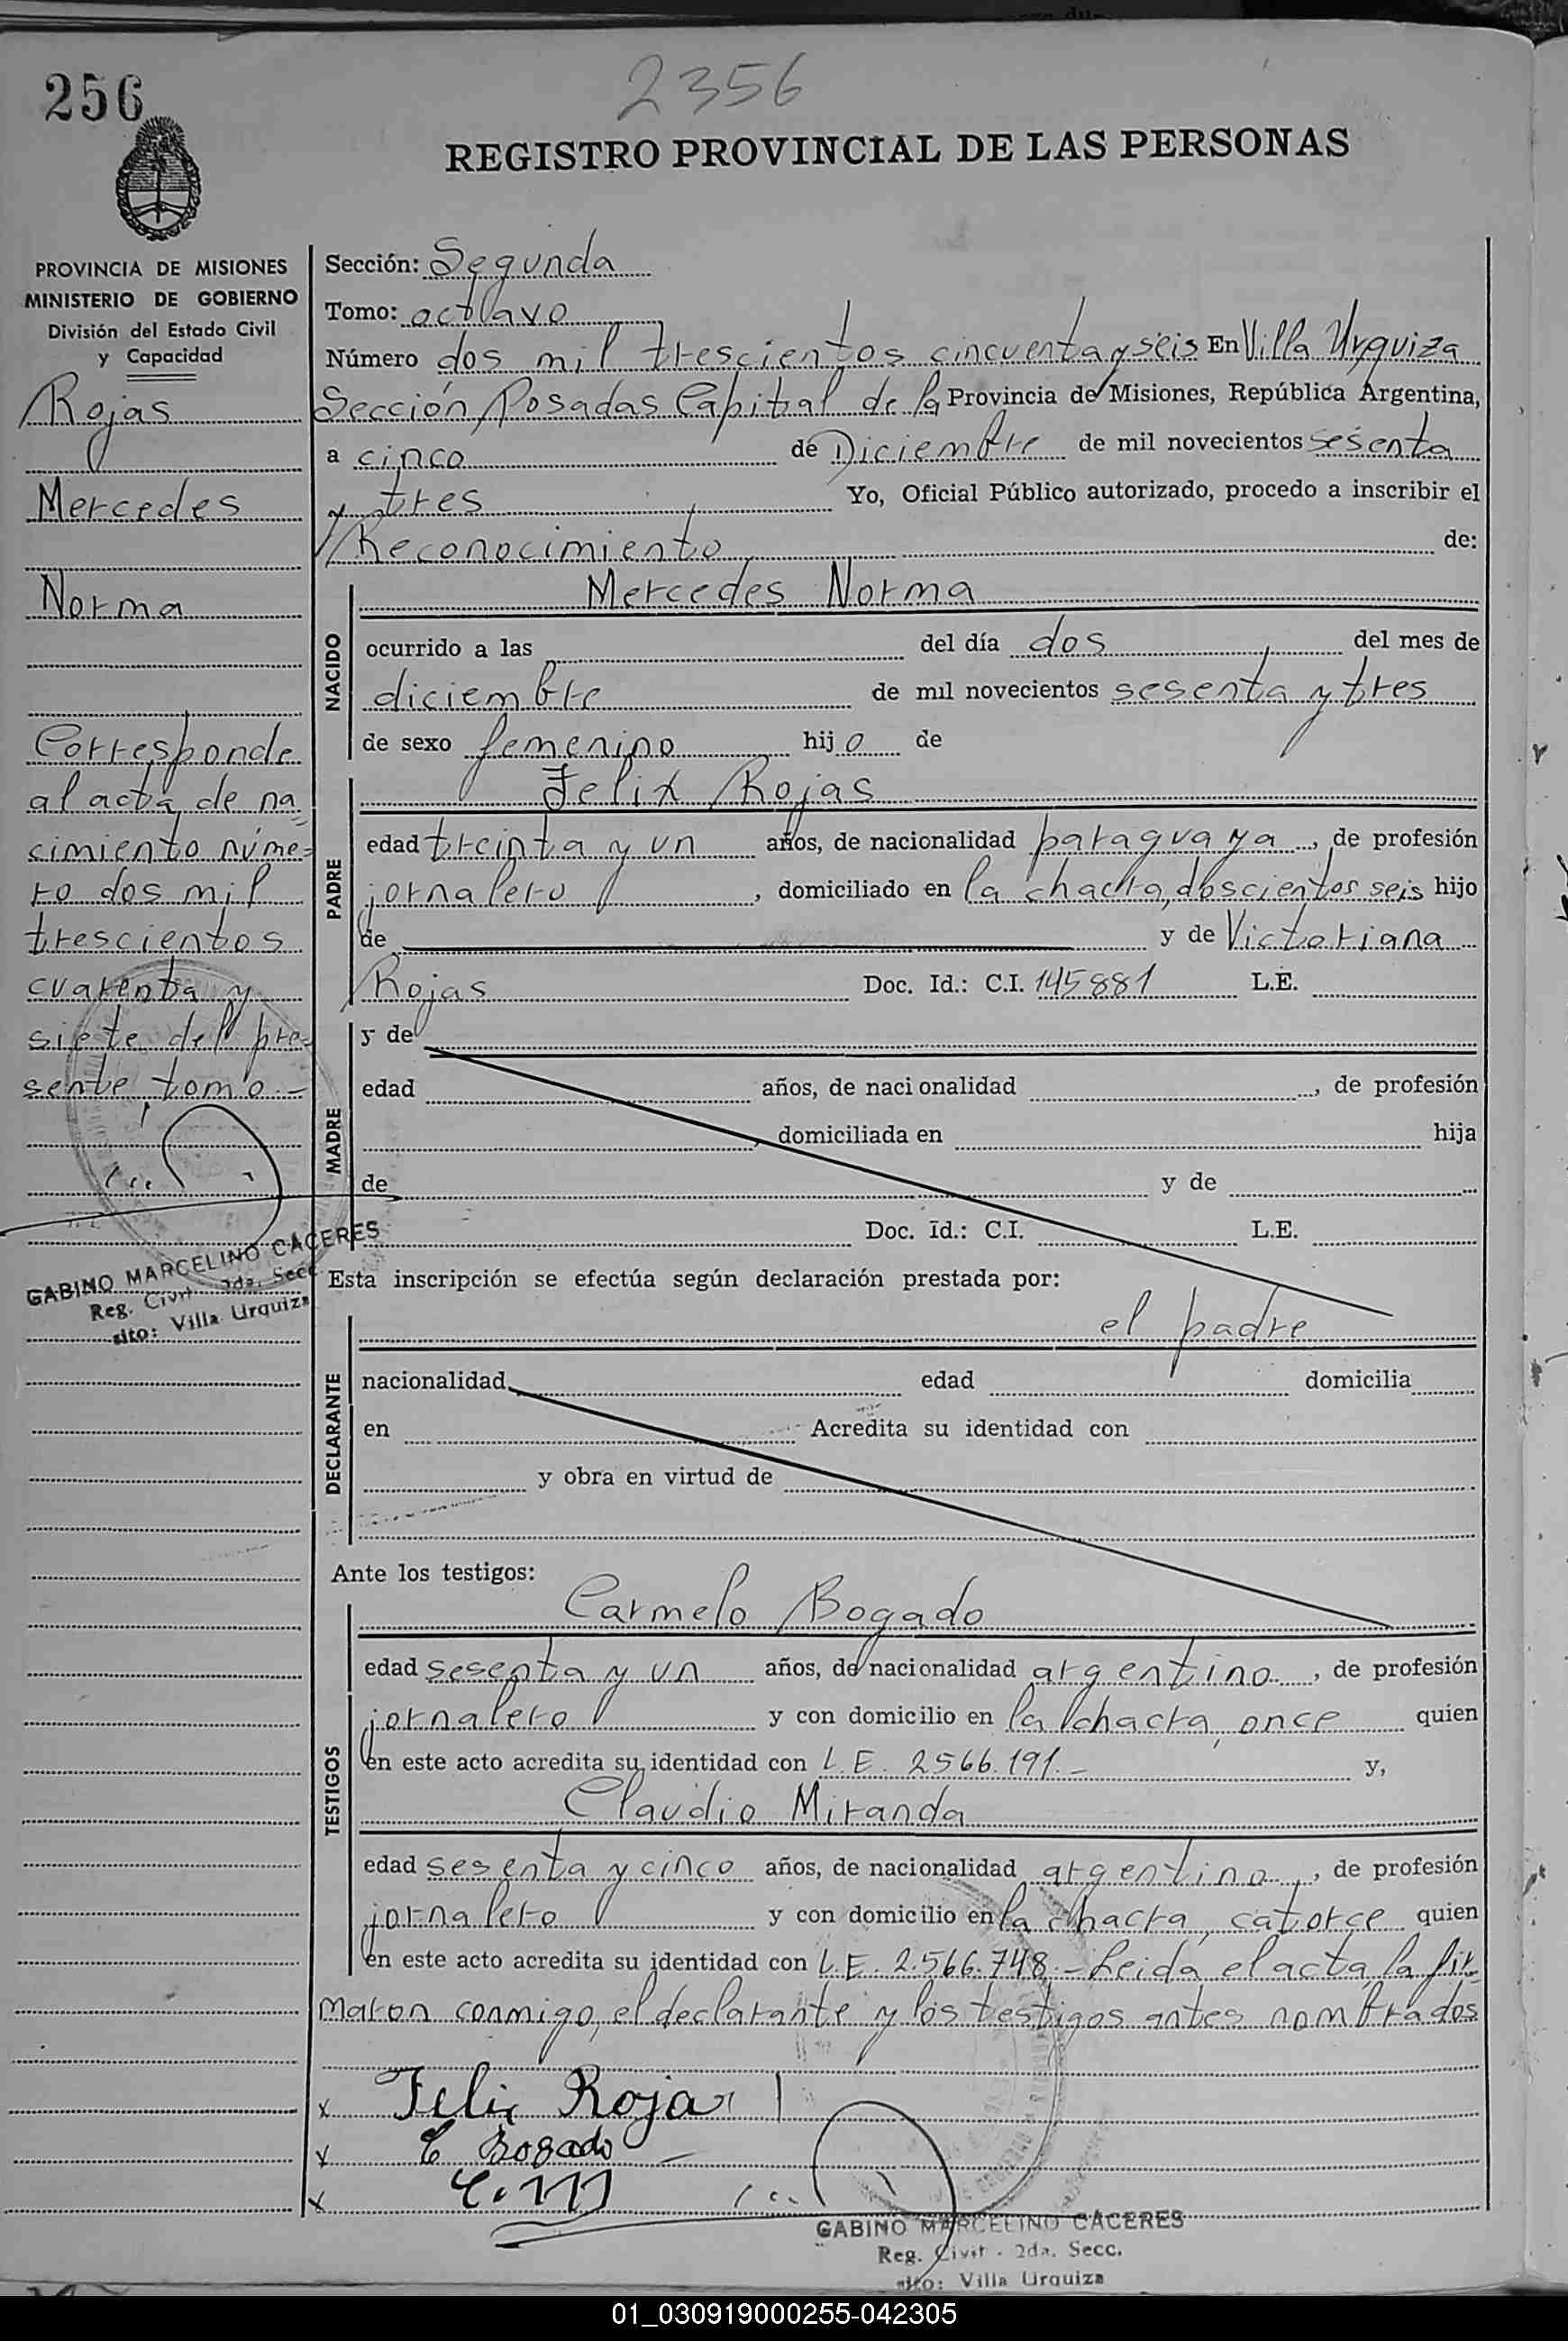 256
2356
REGISTRO PROVINCIAL DE LAS PERSONAS
PROVINCIA DE MISIONES
MINISTERIO DE GOBIERNO
División del Estado Civil
y Capacidad
Rojas
Mercedes
Norma
Corresponde
al acta de na
cimiento núme=
ro dos mil
trescientos
cuarenta y
siete del pre=
sente tomo.-
GABINO MARCELINO CACERES
Reg. Civil 2da. Secc
sito: Villa Urquiza
Sección: Segunda
Tomo: octavo
Número dos mil trescientos cincuenta y seis En Villa Urquiza
Sección Posadas Capital de la Provincia de Misiones, República Argentina,
a cinco de Diciembre de mil novecientos sesenta
y tres Yo, Oficial Público autorizado, procedo a inscribir el
Reconocimiento de:
NACIDO
Mercedes Norma
ocurrido a las del día dos del mes de
diciembre de mil novecientos sesenta y tres
de sexo femenino hijo de
PADRE
Felix Rojas
edad treinta y un años, de nacionalidad paraguaya, de profesión
jornalero, domiciliado en la chacra, doscientos seis hijo
de y de Victoriana
Rojas Doc. Id.: C.I. 145881 L.E.
MADRE
y de
edad años, de naci onalidad , de profesión
, domiciliada en hija
de y de
Doc. Id.: C.I. L.E.
Esta inscripción se efectúa según declaración prestada por:
DECLARANTE
el padre
nacionalidad edad domicilia
en Acredita su identidad con
y obra en virtud de
Ante los testigos:
TESTIGOS
Carmelo Bogado
edad sesenta y un años, de nacionalidad argentino, de profesión
jornalero y con domicilio en la chacra, once quien
en este acto acredita su identidad con L.E. 2566.191.- y,
Claudio Miranda
edad sesenta y cinco años, de nacionalidad argentino, de profesión
jornalero y con domicilio en la chacra, catorce quien
en este acto acredita su identidad con L.E. 2.566.748.- Leida el acta, la fir
maron conmigo, el declarante y los testigos antes nombrados
x Felix Rojas
x C Bogado
x C. M
GABINO MARCELINO CACERES
Reg. Civil - 2da. Secc.
sito: Villa Urquiza
01_030919000255-042305